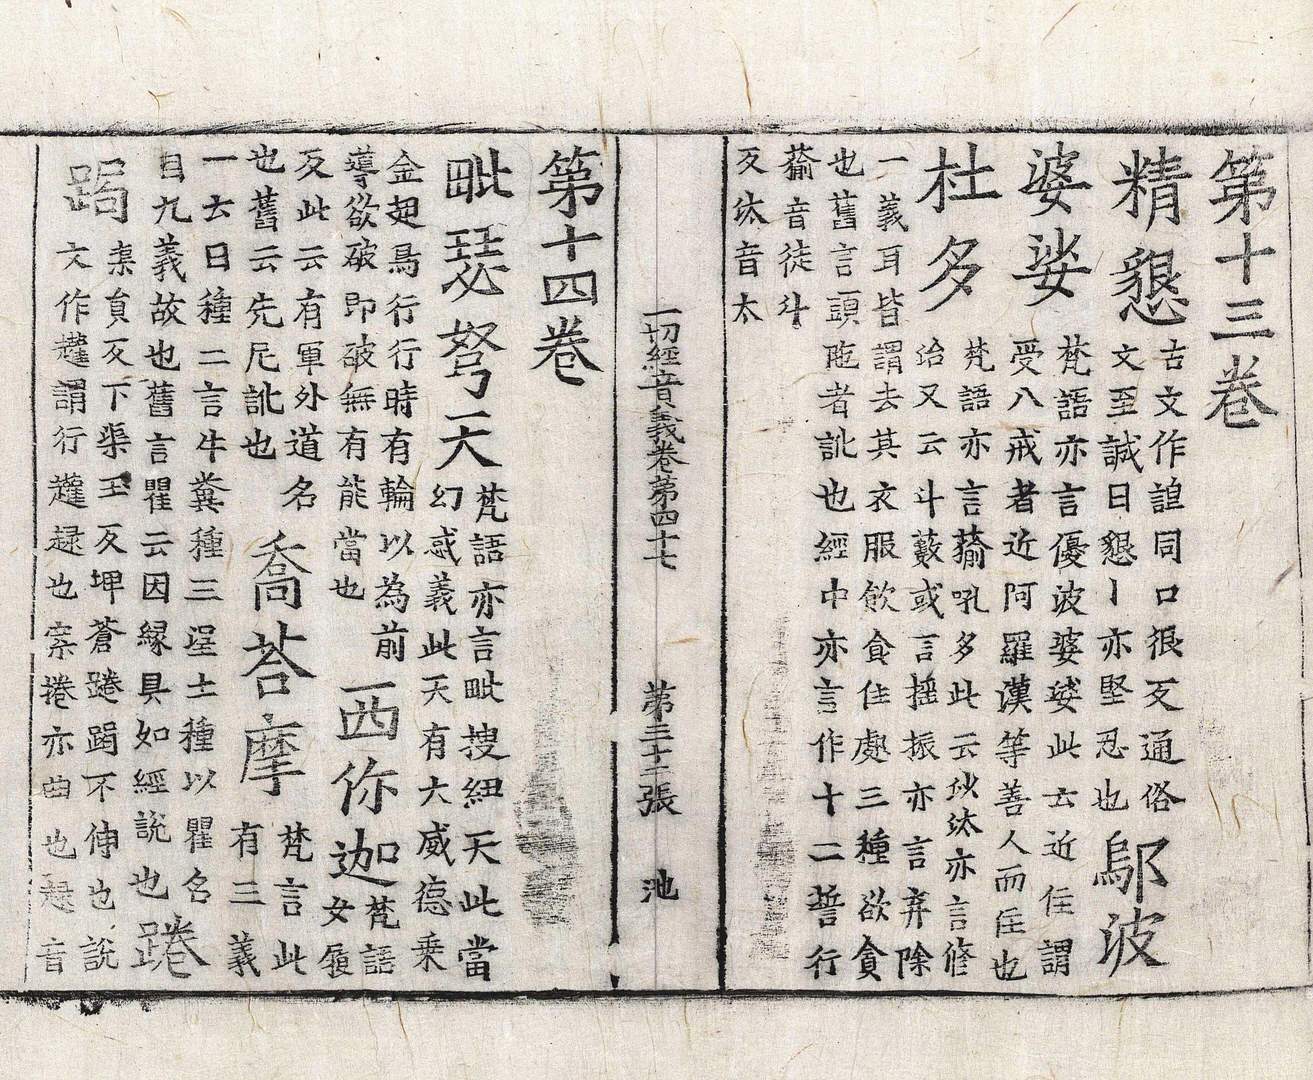 第十三卷
精懇 古文作詪同口很反通俗
文至誠曰懇丨亦堅忍也 鄔波
婆娑 梵語亦言優波婆娑此云近住謂
受八戒者近阿羅漢等善人而住也
杜多 梵語亦言蕍吼多此云汰亦言修
治又云斗藪或言搖振亦言弃除
一義耳皆謂去其衣服飲食住處三種欲貪
也舊言頭陁者訛也經中亦言作十二誓行
蕍音徒斗
反汰音太
一切經音義卷第四十七 第三十二張 池
第十四卷
毗瑟弩天 梵語亦言毗搜紐天此當
幻惑義此天有大威德乘
金翅鳥行行時有輪以為前
導欲破即破無有能當也 西你迦 梵語
女履
反此云有軍外道名
也舊云先尼訛也 喬荅摩 梵言此
有三義
一云日種二言牛糞種三埿土種以瞿名
自九義故也舊言瞿云因緣具如經說也 踡
跼 渠負反下渠玉反埤蒼踡跼不伸也說
文作趯謂行趯趢也案捲亦曲也趢音